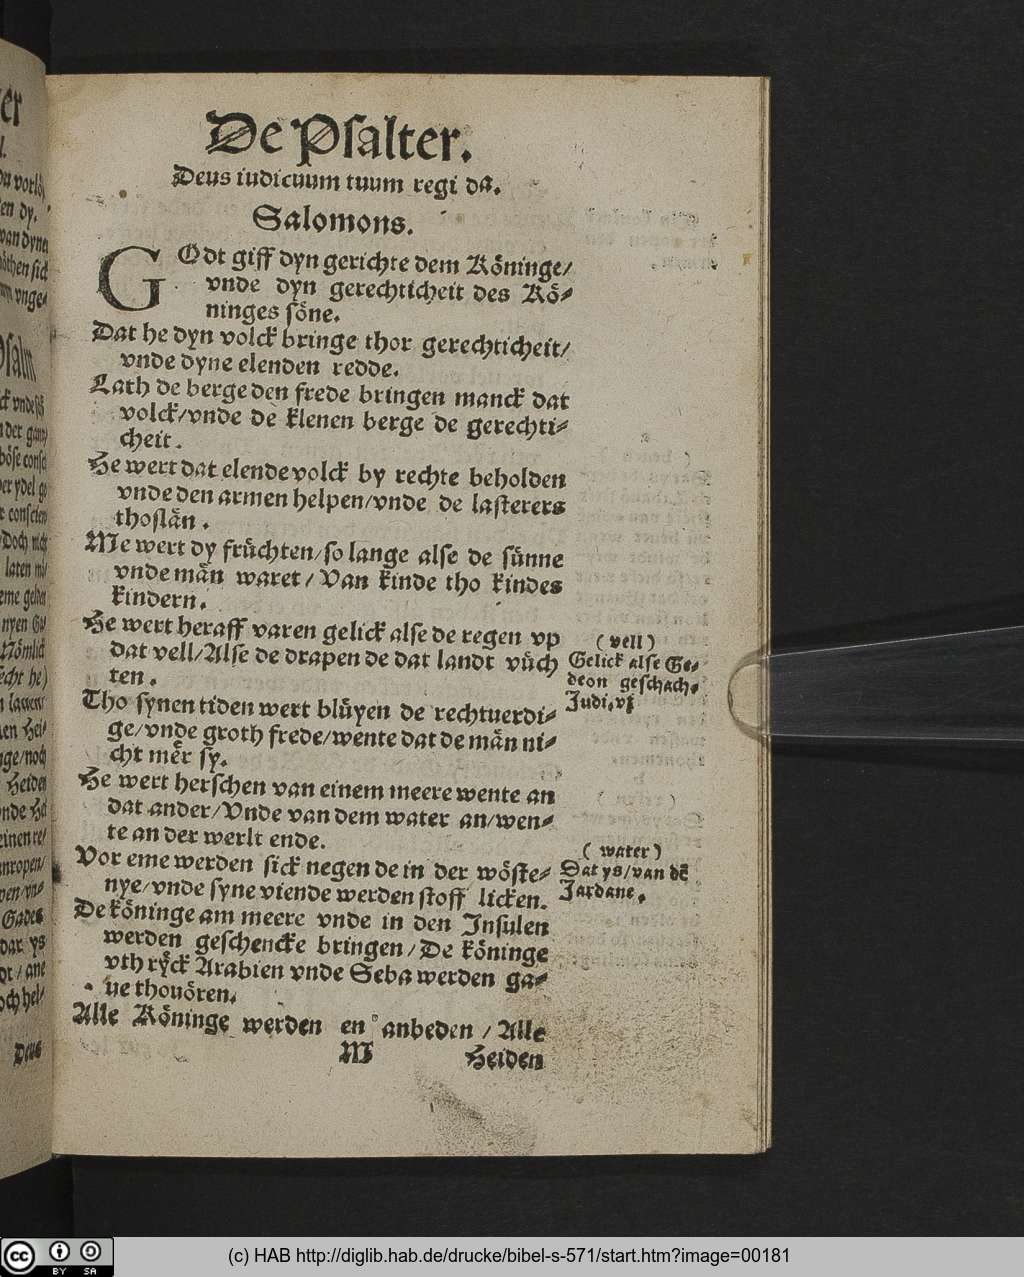 De Psalter.
Deus iudicuum tuum regi da.
Salomons.
GOdt giff dyn gerichte dem Köninge/
vnde dyn gerechticheit des Kö-
ninges söne.
Dat he dyn volck bringe thor gerechticheit/
vnde dyne elenden redde.
Lath de berge den frede bringen manck dat
volck/vnde de klenen berge de gerechti-
cheit.
He wert dat elende volck by rechte beholden
vnde den armen helpen/vnde de lasterers
thoslån.
Me wert dy früchten/so lange alse de sünne
vnde mån waret/Van kinde tho kindes
kindern.
He wert heraff varen gelick alse de regen vp
dat vell/Alse de drapen de dat landt vüch
ten.
(vell)
Gelick alse Ge-
deon geschach.
Judi.vj
Tho synen tiden wert blüyen de rechtuerdi-
ge/vnde groth frede/wente dat de mån ni-
cht mer sy.
He wert herschen van einem meere wente an
dat ander/Vnde van dem water an/wen-
te an der werlt ende.
(water)
Dat ys/van dē
Jardane.
Vor eme werden sick negen de in der wöste-
nye/vnde syne viende werden stoff licken.
De köninge am meere vnde in den Insulen
werden geschencke bringen/De köninge
vth ryck Arabien vnde Seba werden ga-
ue thouören.
Alle Köninge werden en anbeden/Alle
M Heiden
Deus
(c) HAB http://diglib.hab.de/drucke/bibel-s-571/start.htm?image=00181
cc BY SA